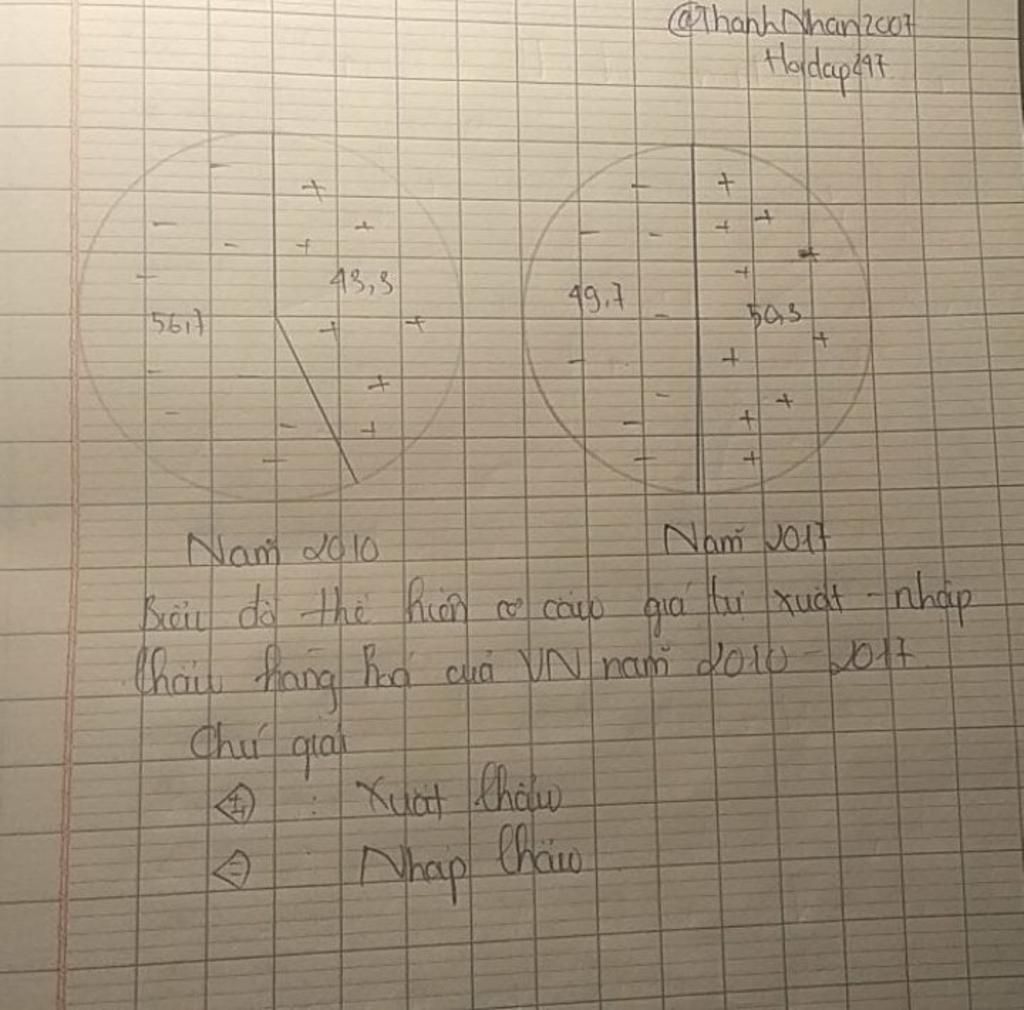 @ThanhNhan2007
Hoidap247
43,3
56,7
49,7
50,3
Năm 2010
Năm 2017
Biểu đồ thể hiện cơ cấu giá trị xuất - nhập
khẩu hàng hoá của VN năm 2010 - 2017
Chú giải
+ : Xuất khẩu
- : Nhập khẩu